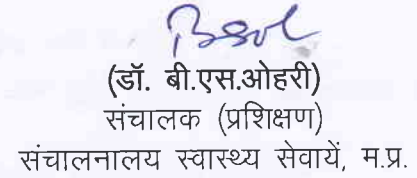 (डॉ. बी.एस.ओहरी)
संचालक (प्रशिक्षण)
संचालनालय स्वास्थ्य सेवायें, म.प्र.